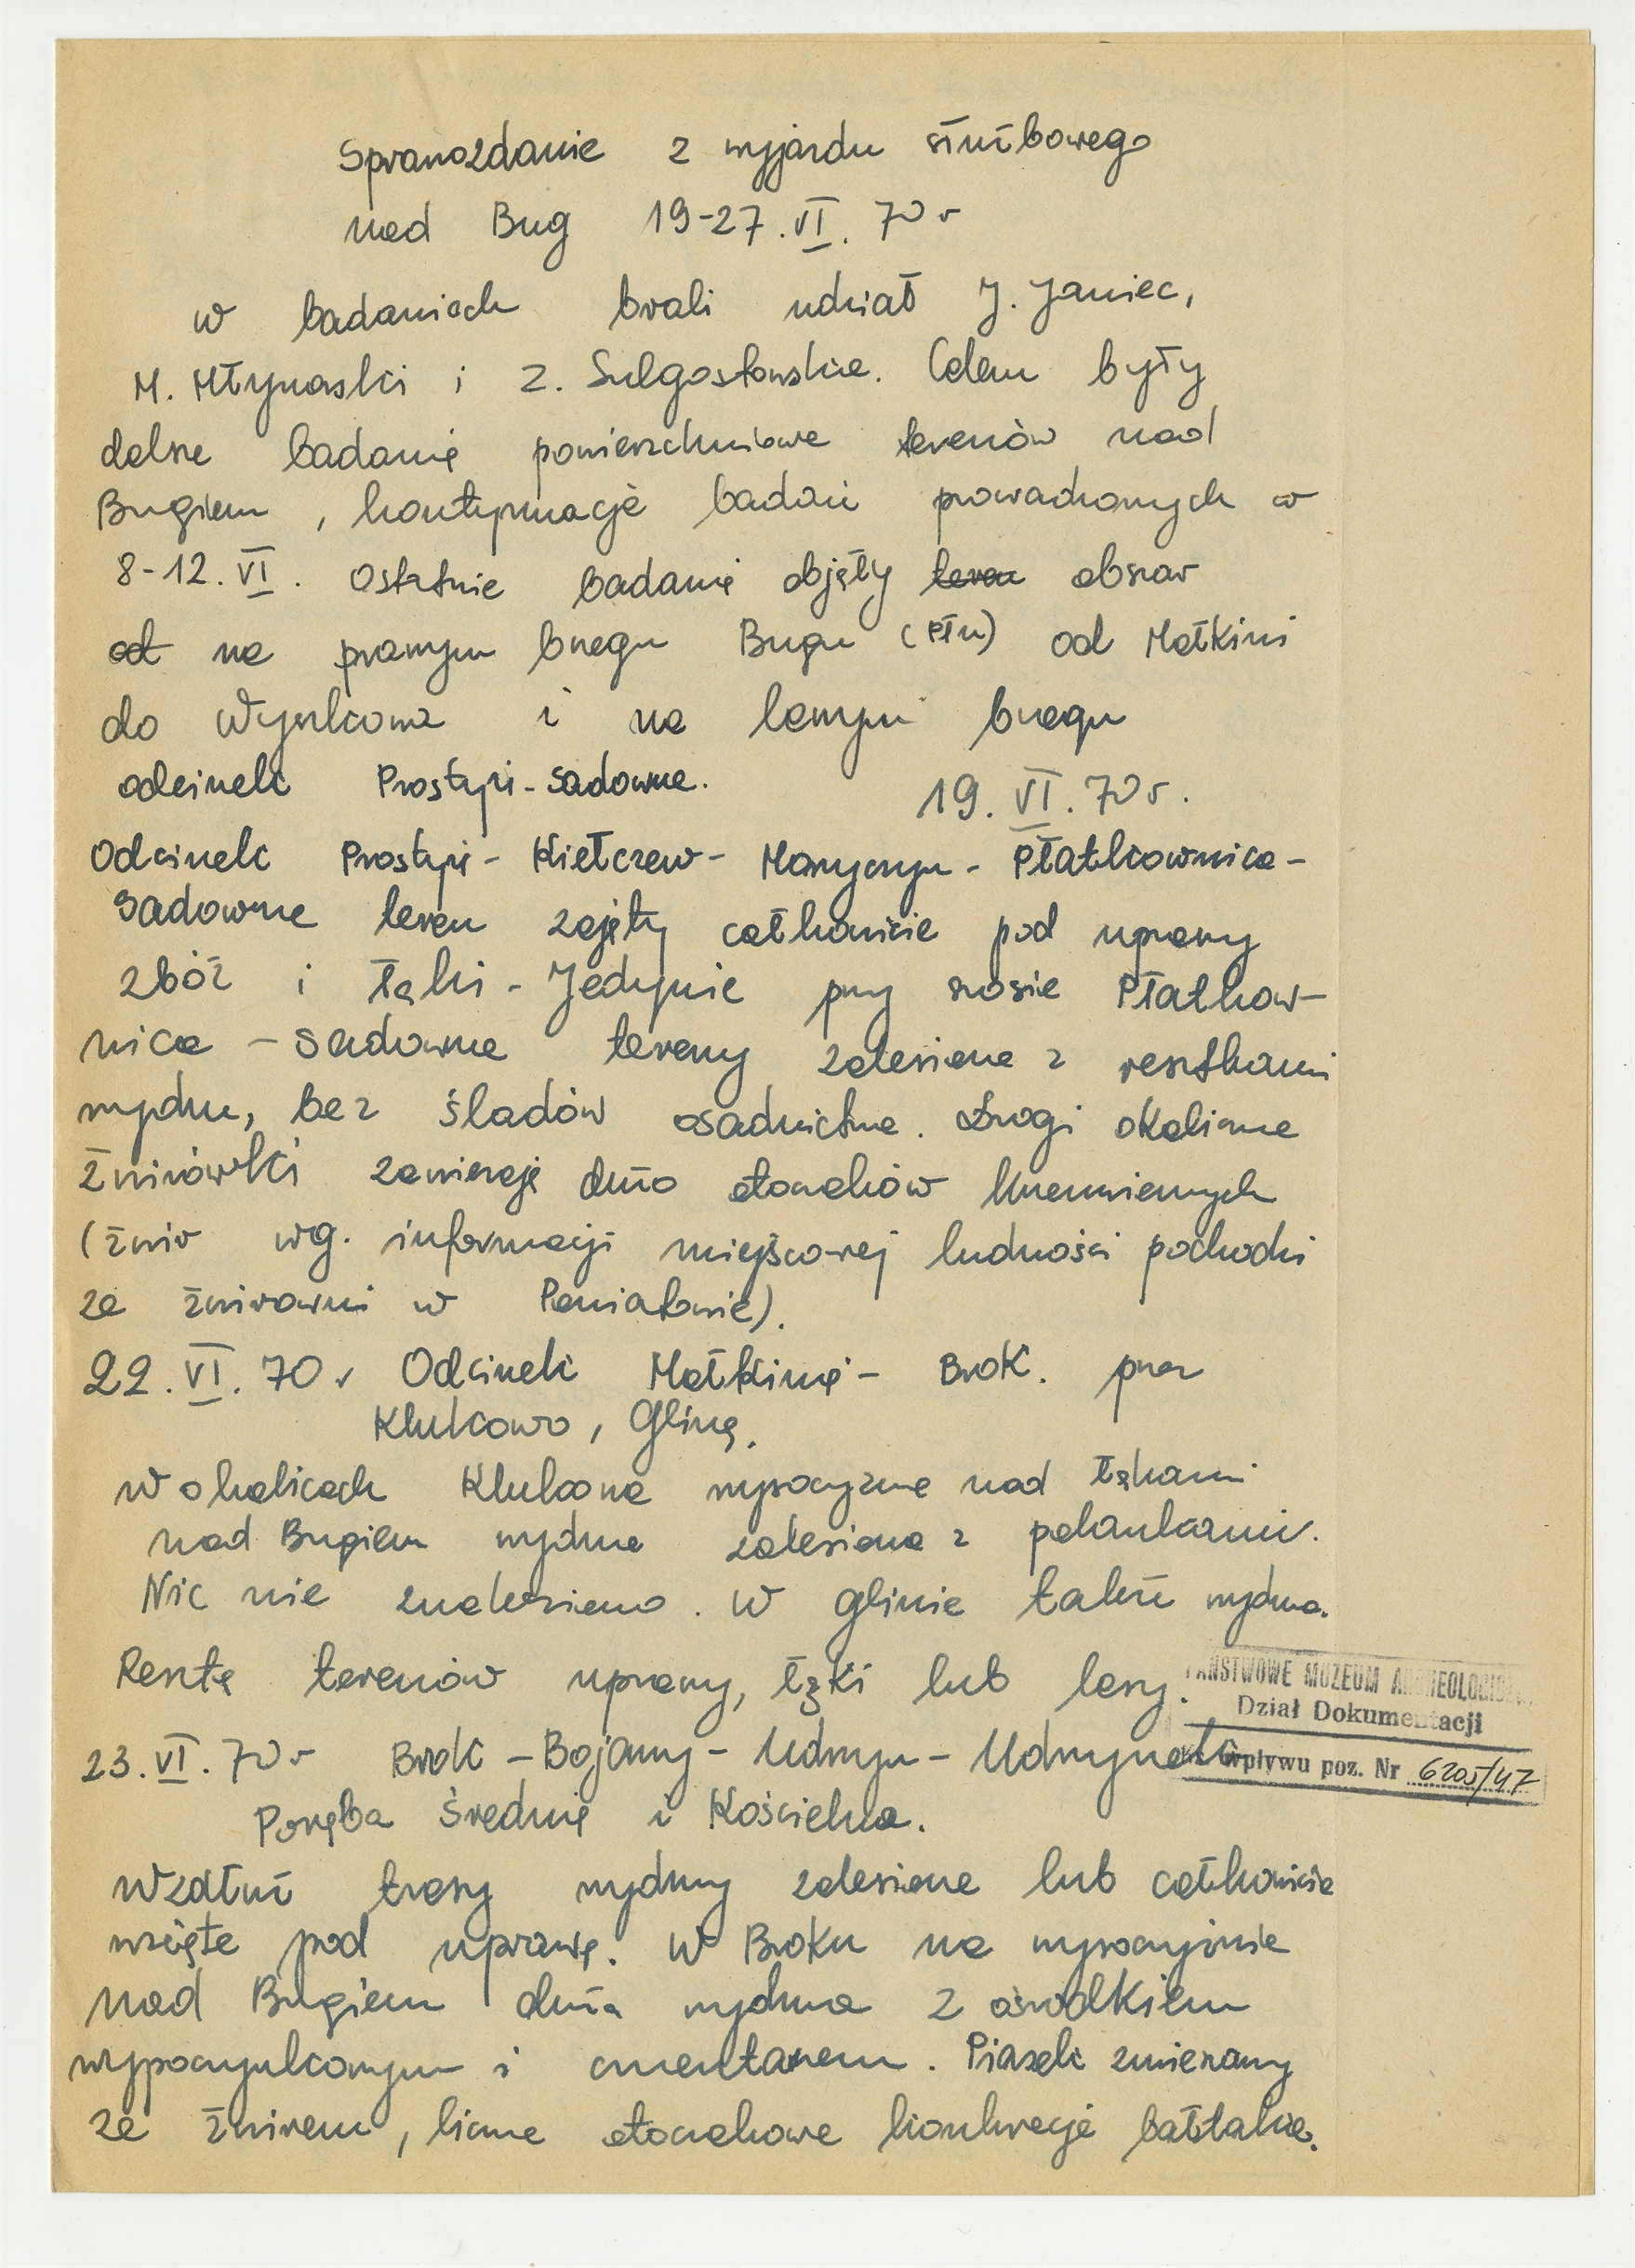 Sprawozdanie z wyjazdu służbowego
nad Bug 19-27.VI.70 r
w badaniach brali udział J. Janiec,
M. Młynarski i Z. Sulgostowska. Celem były
dalsze badania powierzchniowe terenów nad
Bugiem, kontynuacje badań prowadzonych w
8-12.VI. Ostatnie badania objęły teren obszar
od na prawym brzegu Bugu (płn) od Małkini
do Wyszkowa i na lewym brzegu
odcinek Prostyń-Sadowne.
19.VI.70 r.
Odcinek Prostyń - Kiełczew - Morzyczyn - Płatkownica -
Sadowne teren zajęty całkowicie pod uprawy
zbóż i łąki - Jedynie przy szosie Płatkow-
nica - Sadowne tereny zalesione z resztkami
wydm, bez śladów osadnictwa. Drogi okoliczne
żwirówki zawierają dużo otoczaków krzemiennych
(żwir wg. informacji miejscowej ludności pochodzi
ze żwirowni w Poniatowie).
22.VI.70 r Odcinek Małkinia - Brok. przez
Klukowo, Glinę.
W okolicach Klukowa wysoczyzna nad łąkami
nad Bugiem wydma zalesiona z polankami.
Nic nie znaleziono. W Glinie także wydma.
Reszta terenów uprawy, łąki lub lasy.
PAŃSTWOWE MUZEUM ARCHEOLOGICZ
Dział Dokumentacji
wpływu poz. Nr 6205/47
23.VI.70 r Brok - Bojany - Udrzyn - Udrzynek
Poręba Średnia i Kościelna.
Wzdłuż trasy wydmy zalesione lub całkowicie
wzięte pod uprawę. W Broku na wysoczyźnie
nad Bugiem duża wydma z ośrodkiem
wypoczynkowym i cmentarzem. Piasek zmieszany
ze żwirem, liczne otoczakowe konkrecje bałtakie.